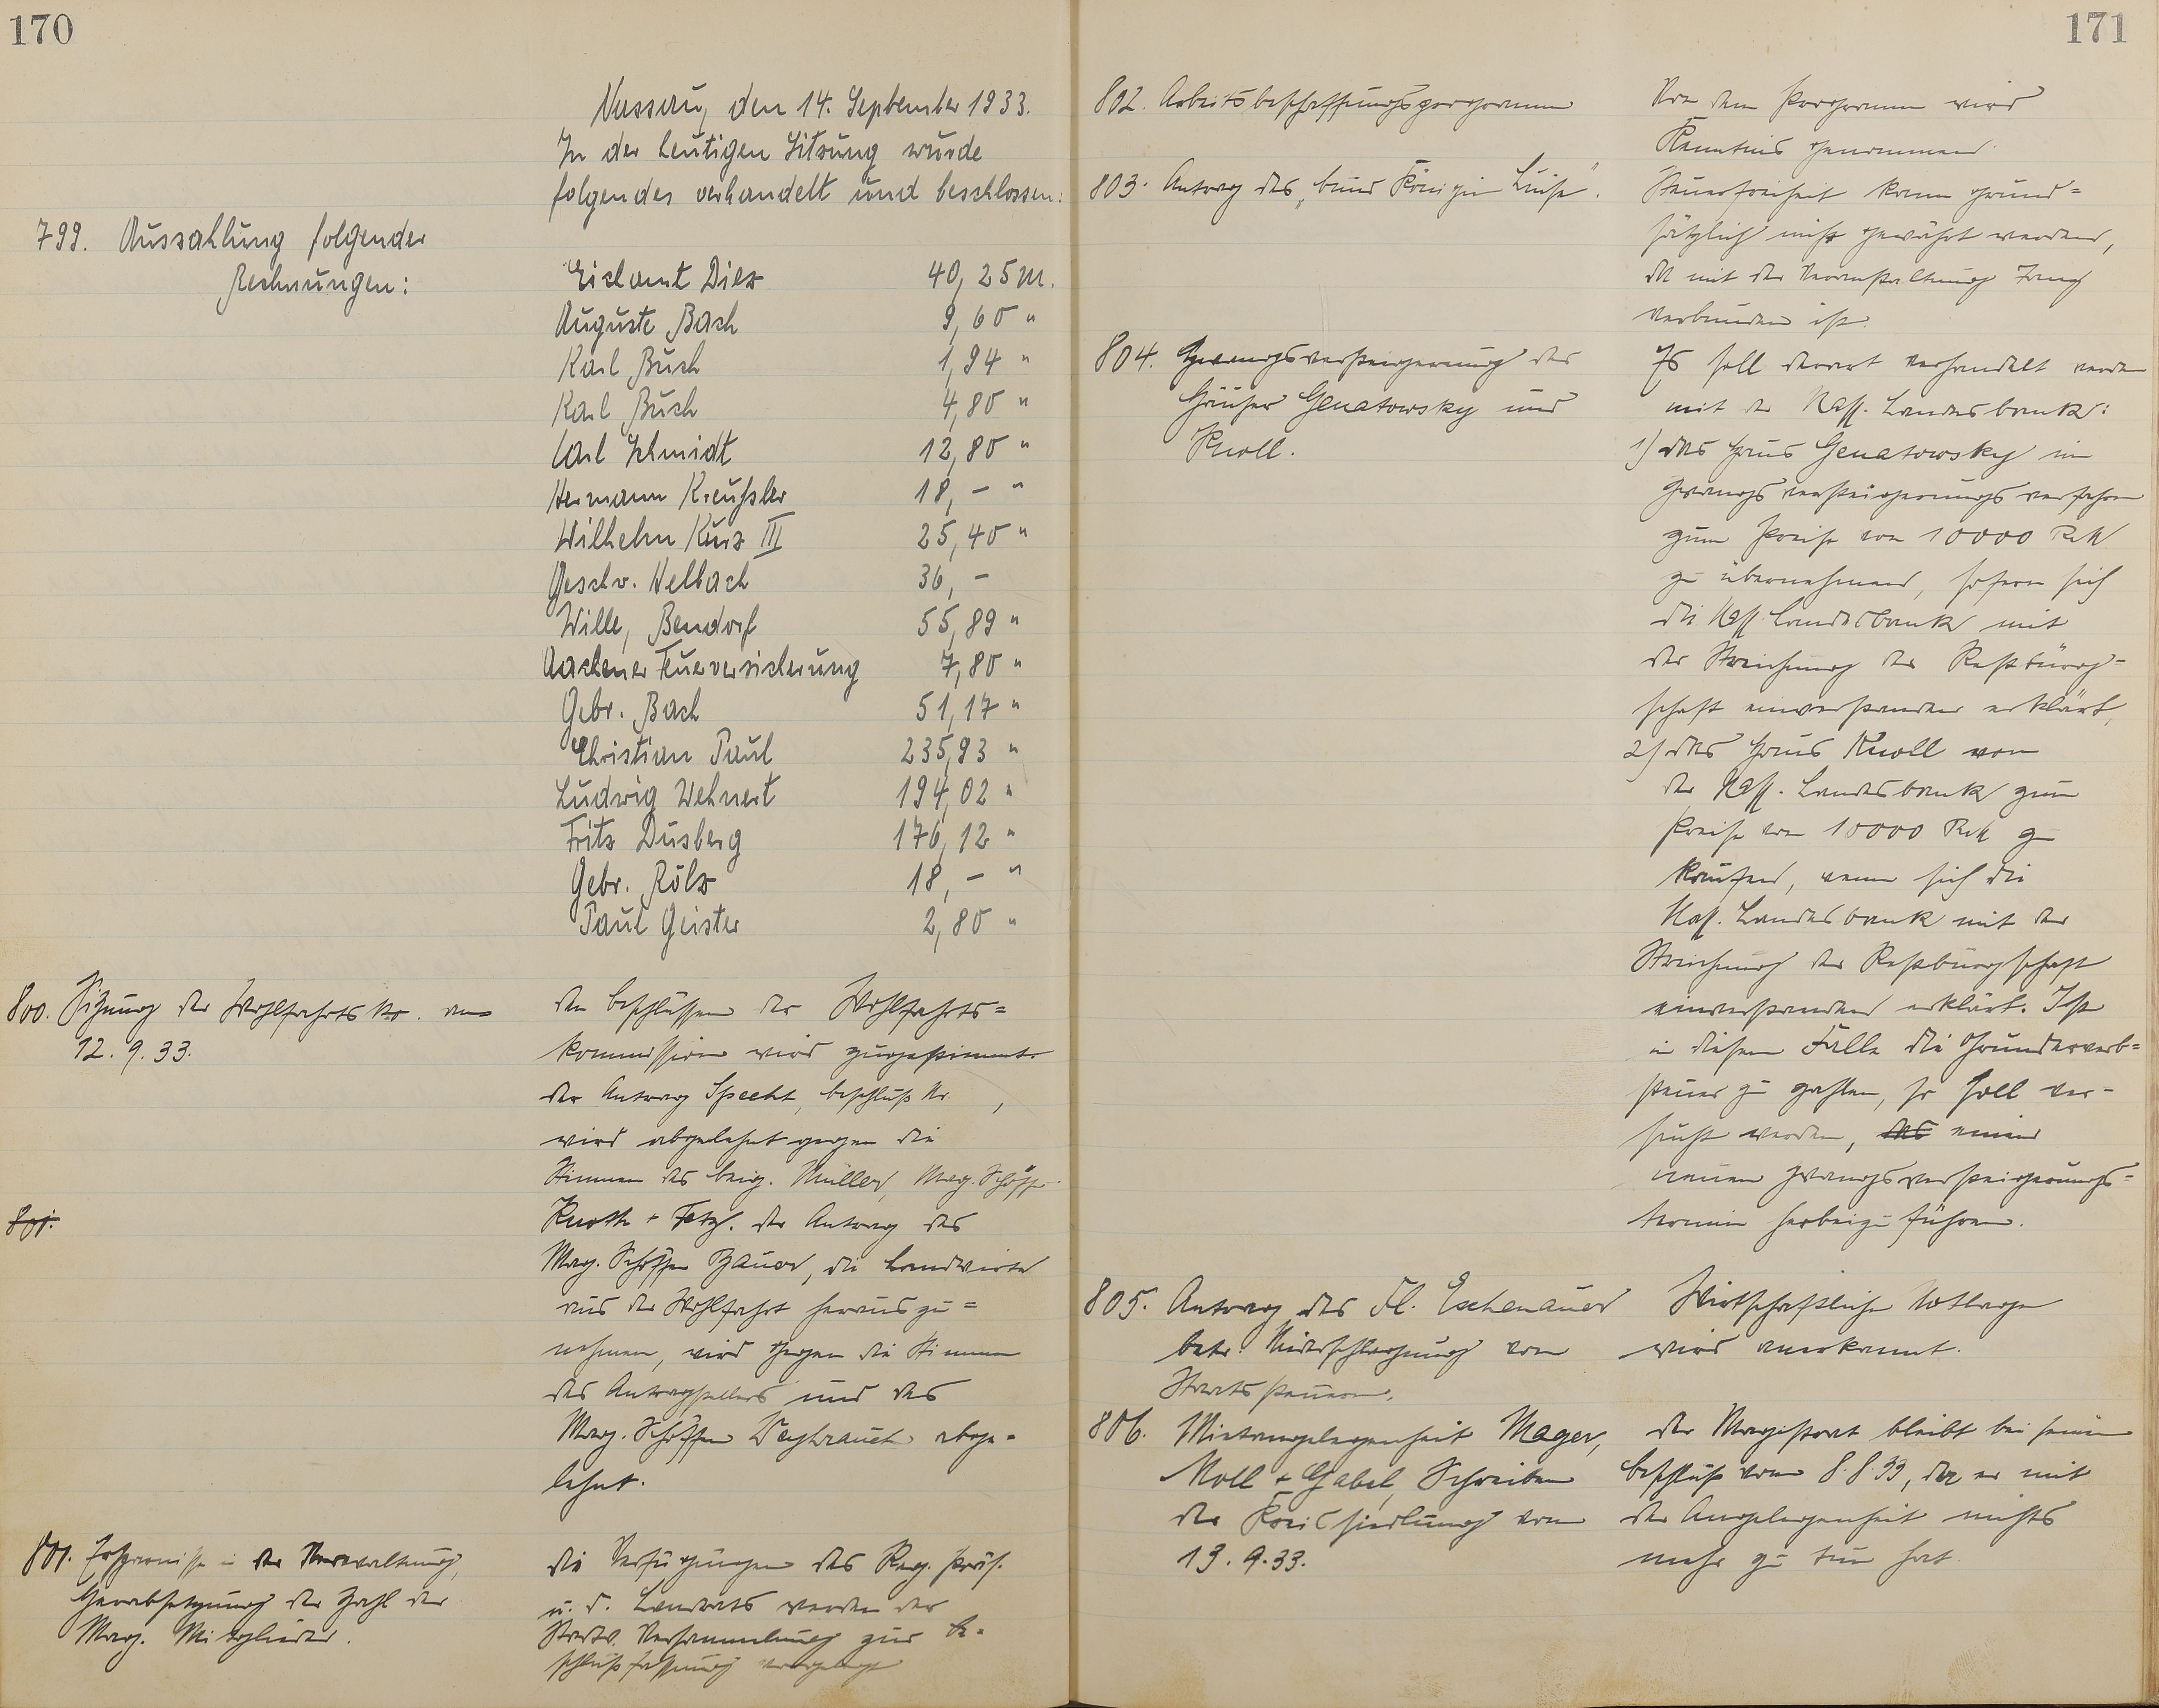 170
Nassau, den 14. September 1933.
In der heutigen Sitzung wurde
folgendes verhandelt und beschlossen:
799. Auszahlung folgender
Rechnungen:
Eichamt Diez 40,25 M.
Auguste Bach 9,60 "
Karl Buch 1,94 "
Karl Buch 4,80 "
Carl Schmidt 12,80 "
Hermann Kreußler 18,— "
Wilhelm Kurz III 25,40 "
Geschw. Helbach 36,—
Wille, Bendorf 55,89 "
Aachener Feuerversicherung 7,80 "
Gebr. Bach 51,17 "
Christian Paul 235,93 "
Ludwig Wehnert 194,02 "
Fritz Dusberg 176,12 "
Gebr. Rölz 18,— "
Paul Geister 2,80 "
800. Sitzung der Wohlfahrtsko. am
12.9.33.
Den Beschlüssen der Wohlfahrts=
kommission wird zugestimmt.
Der Antrag Specht, Beschluß Nr. ,
wird abgelehnt gegen die
Stimmen des Beig. Müller, Mag. Schöff.
Knoth + Fetz. Der Antrag des
801.
Mag. Schöffen Bauer, die Landwirte
aus der Wohlfahrt herauszu=
nehmen, wird gegen die Stimmen
des Antragstellers und des
Mag. Schöffen Weyhrauch abge=
lehnt.
801. Ersparnisse in der Verwaltung,
Herabsetzung der Zahl der
Mag. Mitglieder.
Die Verfügungen des Reg. Präs.
u. d. Landrats werden der
Stadtv. Versammlung zur Be=
schlußfassung vorgelegt
171
802. Arbeitsbeschaffungsprogramm
Von dem Programm wird
Kenntnis genommen.
803. Antrag des "Bund Königin Luise".
Steuerfreiheit kann grund=
sätzlich nicht gewährt werden,
da mit der Veranstaltung Tanz
verbunden ist.
804. Zwangsversteigerung der
Häuser Genatowsky und
Knoll.
Es soll derart verhandelt werden
mit der Nass. Landesbank:
1) das Haus Genatowsky im
Zwangsversteigerungsverfahren
zum Preise von 10000 RM
zu übernehmen, sofern sich
die Nass. Landesbank mit
der Streichung der Restbürg=
schaft einverstanden erklärt,
2) das Haus Knoll von
der Nass. Landesbank zum
Preise von 10000 RM zu
kaufen, wenn sich die
Nass. Landesbank mit der
Streichung der Restbürgschaft
einverstanden erklärt. Ist
in diesem Falle die Grunderwerb=
steuer zu zahlen, so soll ver=
sucht werden, das einen
neuen Zwangsversteigerungs=
termin herbeizuführen.
805. Antrag des Fl. Eschenauer
betr. Niederschlagung von
Staatssteuern.
Wirtschaftliche Notlage
wird anerkannt.
806. Mietangelegenheit Mager,
Noll + Gabel, Schreiben
der Kreissiedlung vom
13.9.33.
Der Magistrat bleibt bei seinem
Beschluß vom 8.8.33, da er mit
der Angelegenheit nichts
mehr zu tun hat.